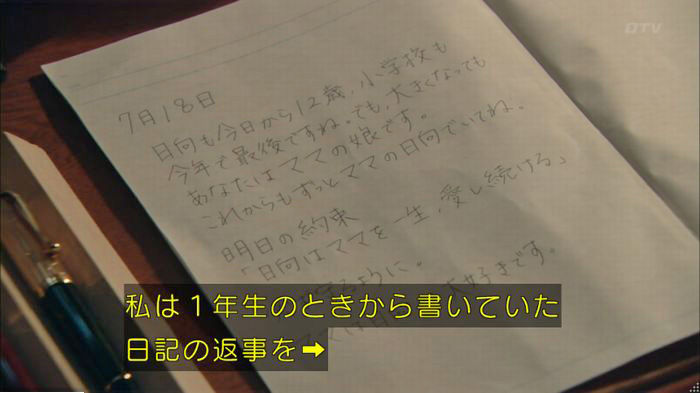 DTV
7月18日
日向も今日から12歳。小学校も
今年で最後ですね。でも、大きくなっても
あなたはママの娘です。
これからもずっとママの日向でいてね。
明日の約束
「日向はママを一生、愛し続ける」
ように。
好きです。
私は1年生のときから書いていた
日記の返事を➡